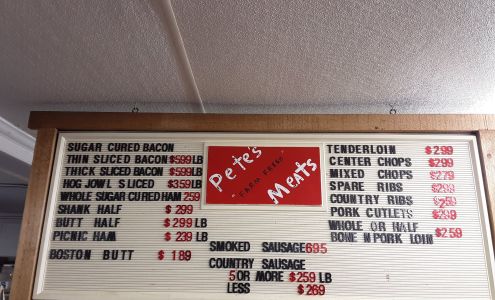 SUGAR CURED BACON
THIN SLICED BACON $599 LB
THICK SLICED BACON $599 LB
HOG JOWL SLICED $359 LB
WHOLE SUGAR CURED HAM 259
SHANK HALF $ 299
BUTT HALF $ 299 LB
PICNIC HAM $ 239 LB
BOSTON BUTT $ 189
Pete's
"FARM FRESH"
MEATS
SMOKED SAUSAGE 695
COUNTRY SAUSAGE
5 OR MORE $259 LB
LESS $269
TENDERLOIN $299
CENTER CHOPS $299
MIXED CHOPS $279
SPARE RIBS
COUNTRY RIBS
PORK CUTLETS
WHOLE OR HALF
BONE N PORK LOIN $259